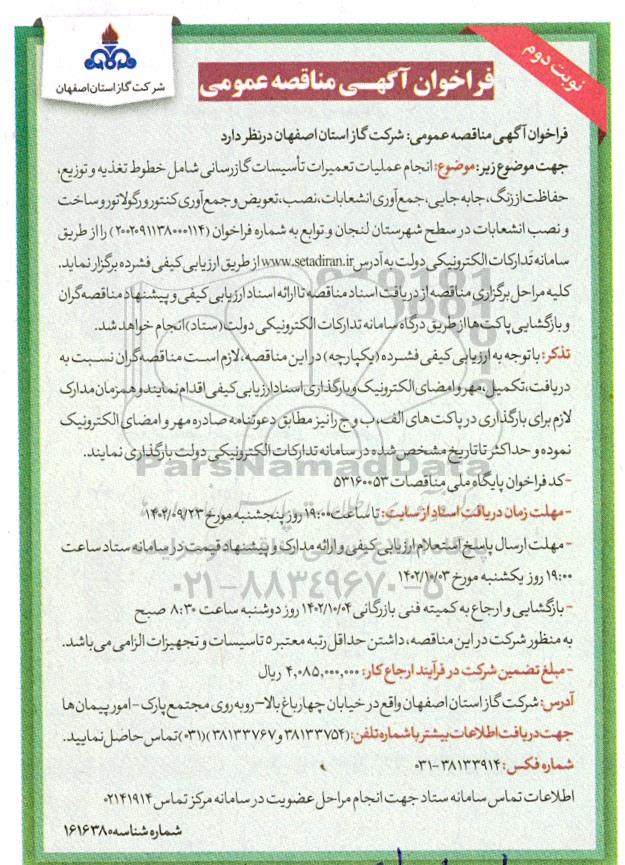 نوبت دوم
شرکت گاز استان اصفهان
فراخوان آگهی مناقصه عمومی
فراخوان آگهی مناقصه عمومی: شرکت گاز استان اصفهان درنظر دارد
جهت موضوع زیر: موضوع: انجام عملیات تعمیرات تأسیسات گازرسانی شامل خطوط تغذیه و توزیع،
حفاظت از زنگ، جابه جایی، جمع آوری انشعابات، نصب، تعویض و جمع آوری کنتور و رگولاتور و ساخت
و نصب انشعابات در سطح شهرستان لنجان و توابع به شماره فراخوان (۲۰۰۲۰۹۱۱۳۸۰۰۰۱۱۴) را از طریق
سامانه تدارکات الکترونیکی دولت به آدرس www.setadiran.ir از طریق ارزیابی کیفی فشرده برگزار نماید.
کلیه مراحل برگزاری مناقصه از دریافت اسناد مناقصه تا ارائه اسناد ارزیابی کیفی و پیشنهاد مناقصه گران
و بازگشایی پاکت ها از طریق درگاه سامانه تدارکات الکترونیکی دولت (ستاد) انجام خواهد شد.
تذکر: با توجه به ارزیابی کیفی فشرده (یکپارچه) در این مناقصه، لازم است مناقصه گران نسبت به
دریافت، تکمیل، مهر و امضای الکترونیک و بارگذاری اسناد ارزیابی کیفی اقدام نمایند و همزمان مدارک
لازم برای بارگذاری در پاکت های الف، ب و ج را نیز مطابق دعوتنامه صادره مهر و امضای الکترونیک
نموده و حداکثر تا تاریخ مشخص شده در سامانه تدارکات الکترونیکی دولت بارگذاری نمایند.
ParsNamadData
- کد فراخوان پایگاه ملی مناقصات ۵۳۱۶۰۰۵۳
- مهلت زمان دریافت اسناد از سایت: تا ساعت ۱۹:۰۰ روز پنجشنبه مورخ ۱۴۰۲/۰۹/۲۳
- مهلت ارسال پاسخ استعلام ارزیابی کیفی و ارائه مدارک و پیشنهاد قیمت در سامانه ستاد ساعت
۱۹:۰۰ روز یکشنبه مورخ ۱۴۰۲/۱۰/۰۳
۰۲۱-۸۸۳۴۹۶۷۰-۵
- بازگشایی و ارجاع به کمیته فنی بازرگانی ۱۴۰۲/۱۰/۰۴ روز دوشنبه ساعت ۸:۳۰ صبح
به منظور شرکت در این مناقصه، داشتن حداقل رتبه معتبر ۵ تاسیسات و تجهیزات الزامی می باشد.
- مبلغ تضمین شرکت در فرآیند ارجاع کار: ۴,۰۸۵,۰۰۰,۰۰۰ ریال
آدرس: شرکت گاز استان اصفهان واقع در خیابان چهارباغ بالا- روبه روی مجتمع پارک - امور پیمان ها
جهت دریافت اطلاعات بیشتر با شماره تلفن: (۳۸۱۳۳۷۵۴ و ۳۸۱۳۳۷۶۷) (۰۳۱) تماس حاصل نمایید.
شماره فکس: ۳۸۱۳۳۹۱۴-۰۳۱
اطلاعات تماس سامانه ستاد جهت انجام مراحل عضویت در سامانه مرکز تماس ۰۲۱۴۱۹۱۴
شماره شناسه ۱۶۱۶۳۸۰